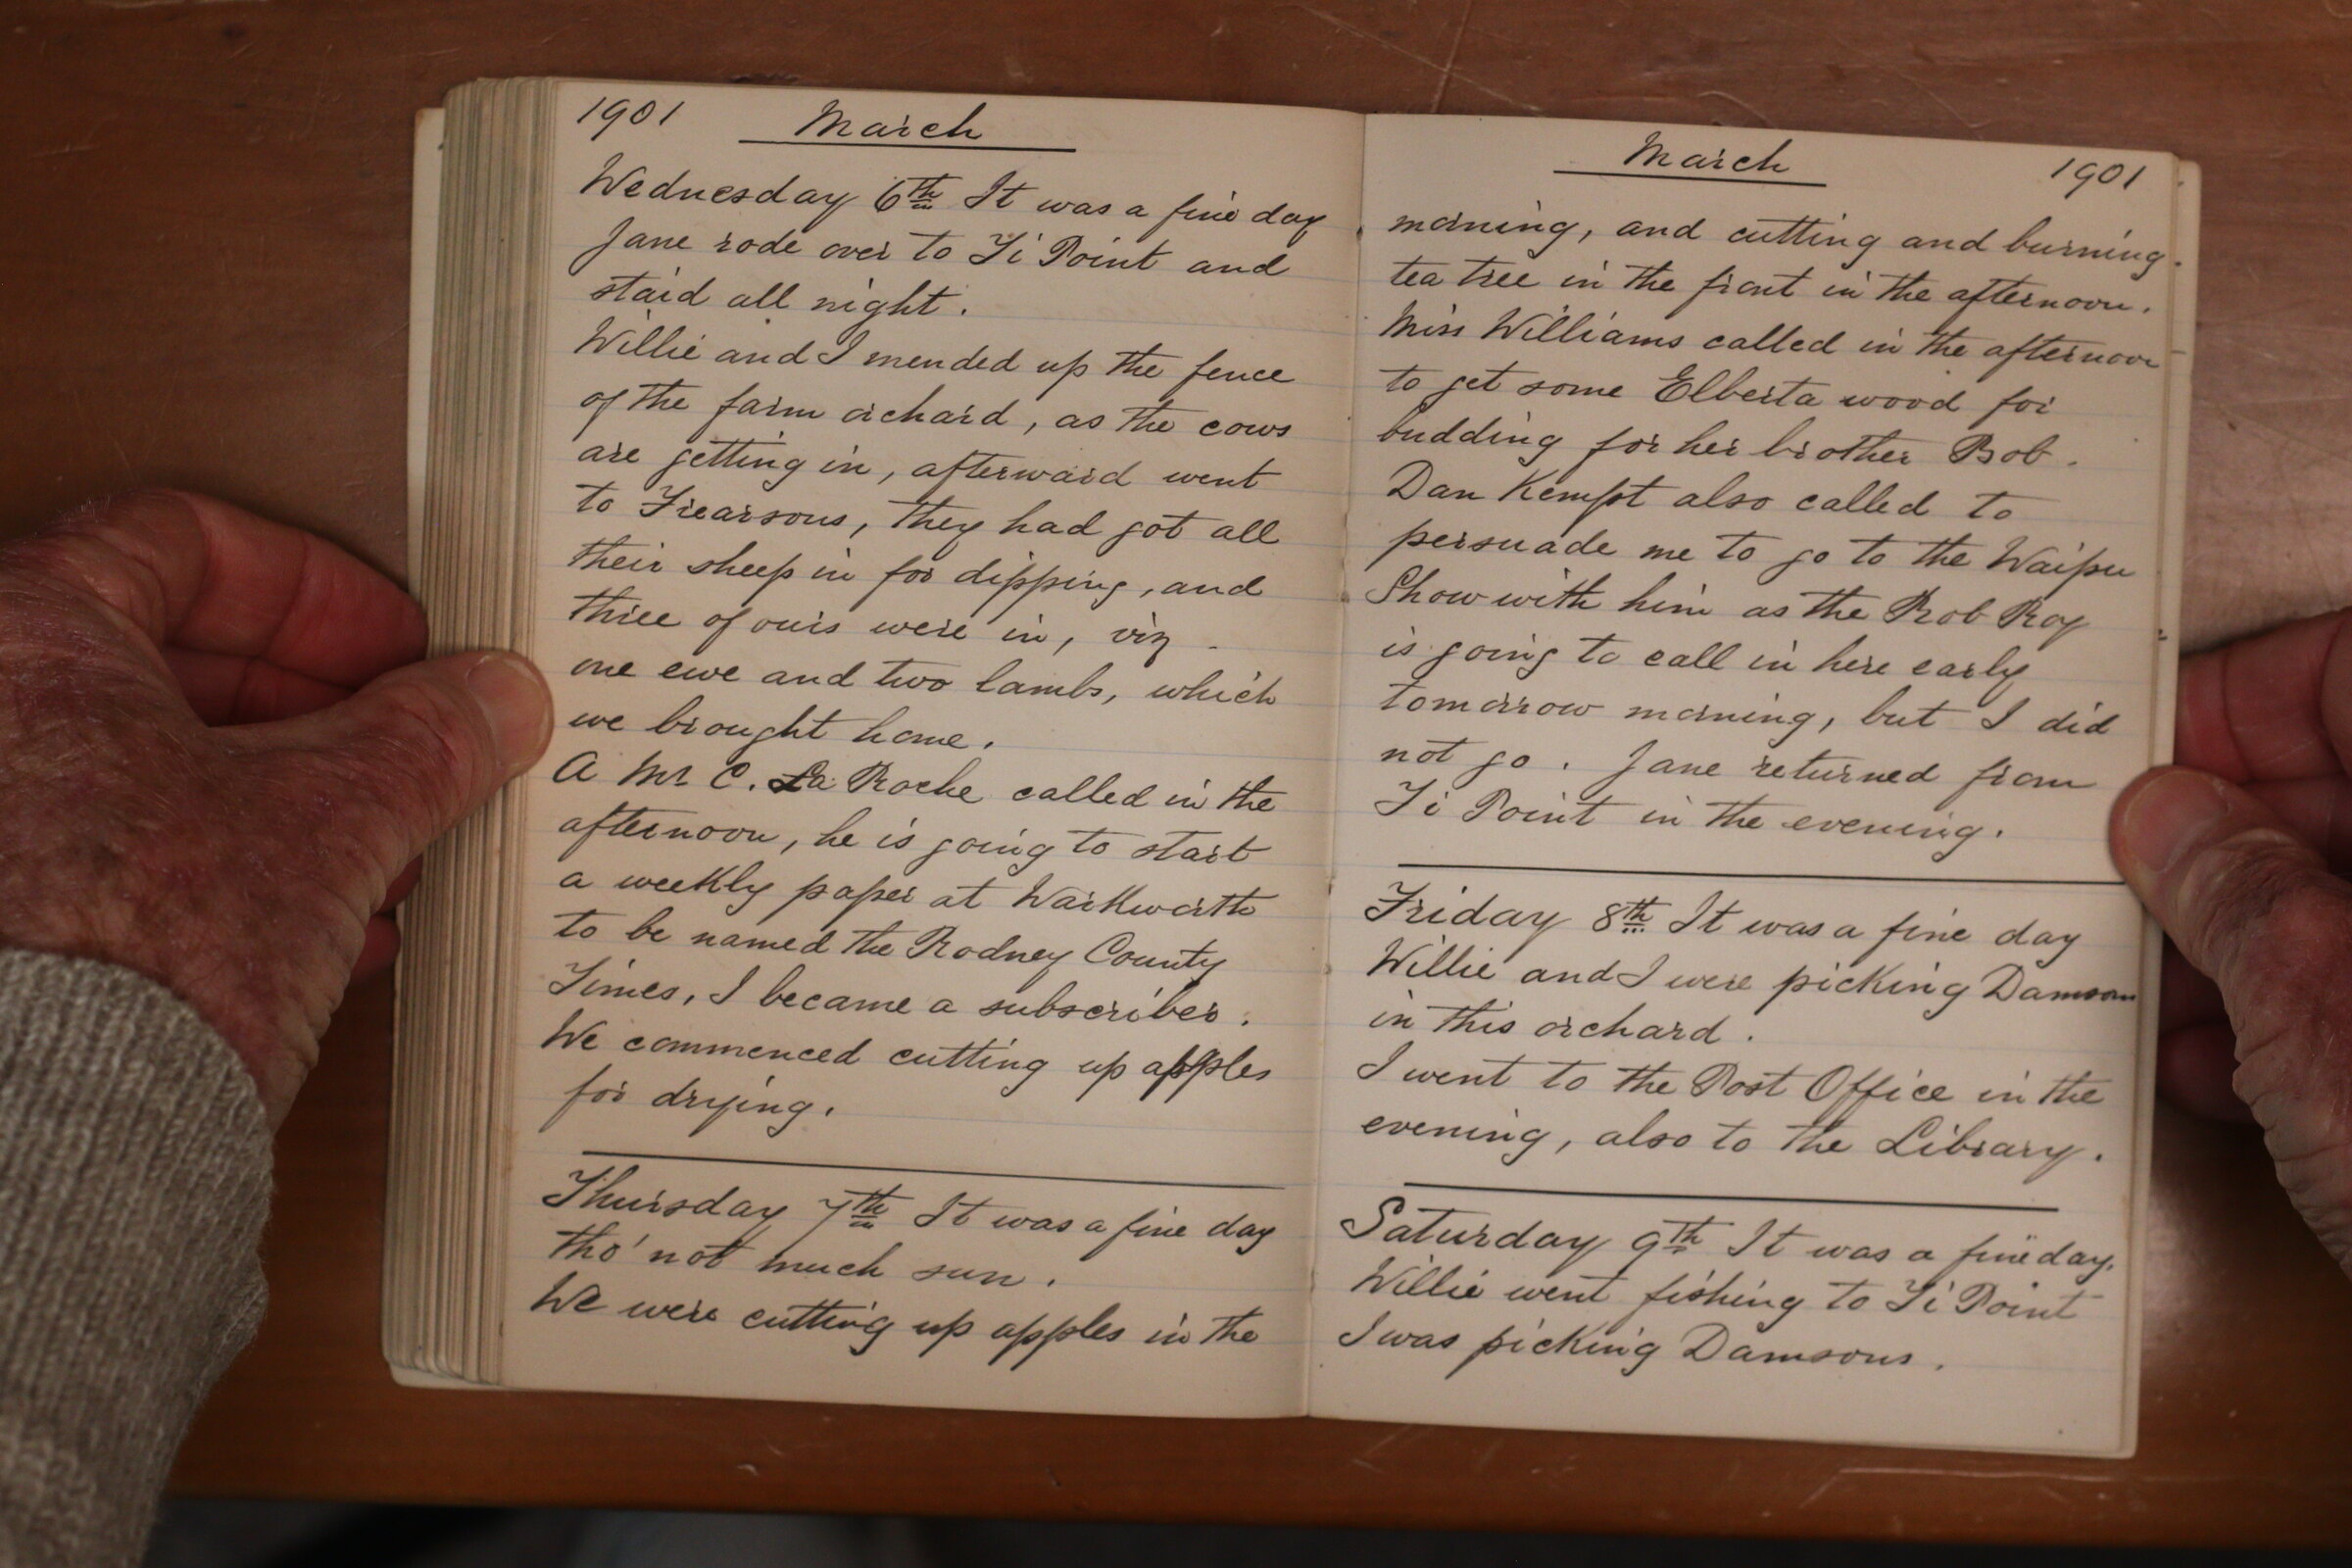 1901 March
Wednesday 6th It was a fine day
Jane rode over to Ti Point and
staid all night.
Willie and I mended up the fence
of the farm orchard, as the cows
are getting in, afterward went
to Frearsons, they had got all
their sheep in for dipping, and
three of ours were in, viz -
one ewe and two lambs, which
we brought home.
A Mr C. La Roche called in the
afternoon, he is going to start
a weekly paper at Warkworth
to be named the Rodney County
Times, I became a subscriber.
We commenced cutting up apples
for drying.
Thursday 7th It was a fine day
tho' not much sun.
We were cutting up apples in the
March 1901
morning, and cutting and burning
tea tree in the front in the afternoon.
Miss Williams called in the afternoon
to get some Elberta wood for
budding for her brother Bob.
Dan Kempt also called to
persuade me to go to the Waipu
Show with him as the Rob Roy
is going to call in here early
tomorrow morning, but I did
not go. Jane returned from
Ti Point in the evening.
Friday 8th It was a fine day
Willie and I were picking Damsons
in this orchard.
I went to the Post Office in the
evening, also to the Library.
Saturday 9th It was a fine day.
Willie went fishing to Ti Point
I was picking Damsons.